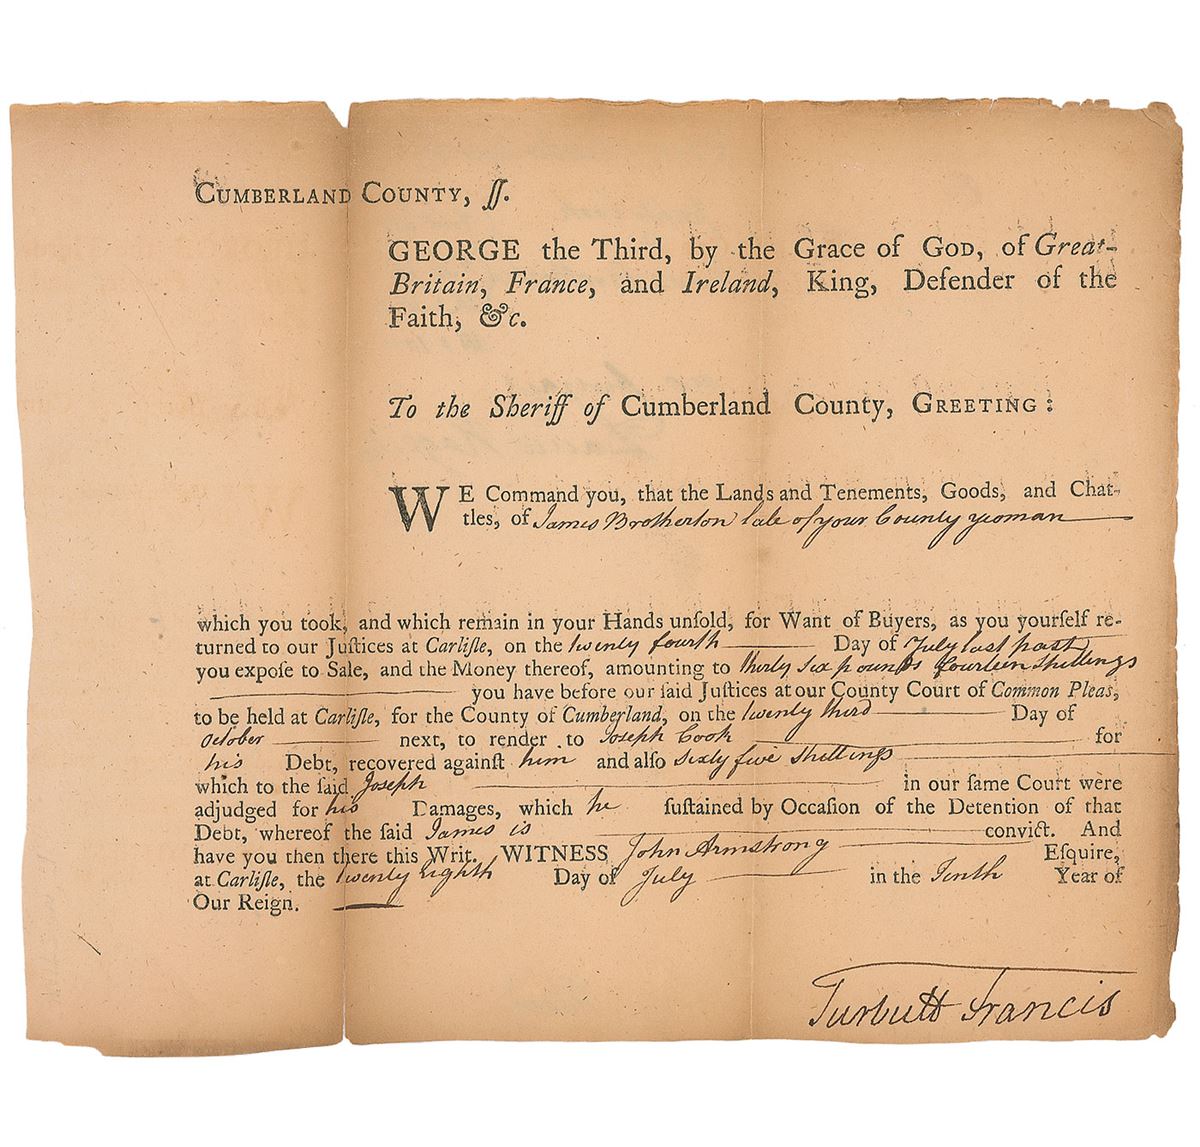 CUMBERLAND COUNTY, ſſ.
GEORGE the Third, by the Grace of GOD, of Great-
Britain, France, and Ireland, King, Defender of the
Faith, &c.
To the Sheriff of Cumberland County, GREETING:
WE Command you, that the Lands and Tenements, Goods, and Chat-
tles, of James Brotherton late of your County yeoman
which you took, and which remain in your Hands unſold, for Want of Buyers, as you yourſelf re-
turned to our Juſtices at Carliſle, on the twenty fourth Day of July last past
you expoſe to Sale, and the Money thereof, amounting to thirty six pounds fourteen shillings
you have before our ſaid Juſtices at our County Court of Common Pleas,
to be held at Carliſle, for the County of Cumberland, on the twenty third Day of
October next, to render to Joseph Cook for
his Debt, recovered againſt him and alſo sixty five shillings
which to the ſaid Joseph in our ſame Court were
adjudged for his Damages, which he ſuſtained by Occaſion of the Detention of that
Debt, whereof the ſaid James is convict. And
have you then there this Writ. WITNESS John Armstrong Eſquire,
at Carliſle, the twenty eighth Day of July in the Tenth Year of
Our Reign.
Turbutt Francis